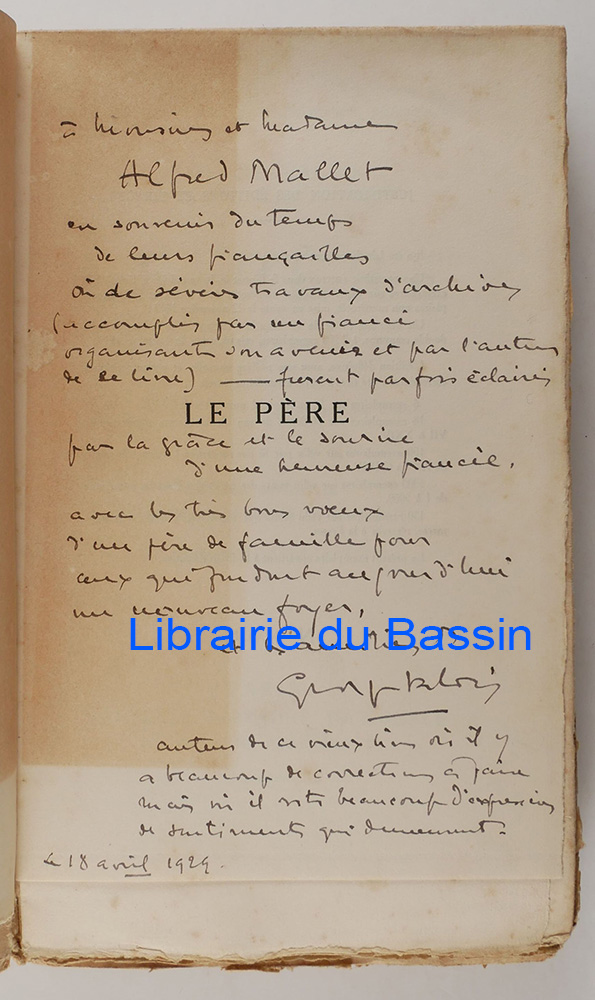 à Monsieur et Madame
Alfred Mallet
en souvenir du temps
de leurs fiançailles
où de sévères travaux d'archives
(accomplis par un fiancé
organisant son avenir et par l'auteur
de ce livre) — furent parfois éclairés
LE PÈRE
par la grâce et le sourire
d'une heureuse fiancée,
avec les très bons vœux
d'un père de famille pour
ceux qui fondent aujourd'hui
un nouveau foyer,
Librairie du Bassin
et
George Valois
auteur de ce vieux livre où il y
a beaucoup de corrections à faire
mais où il reste beaucoup d'expressions
de sentiments qui demeurent.
le 18 avril 1929.